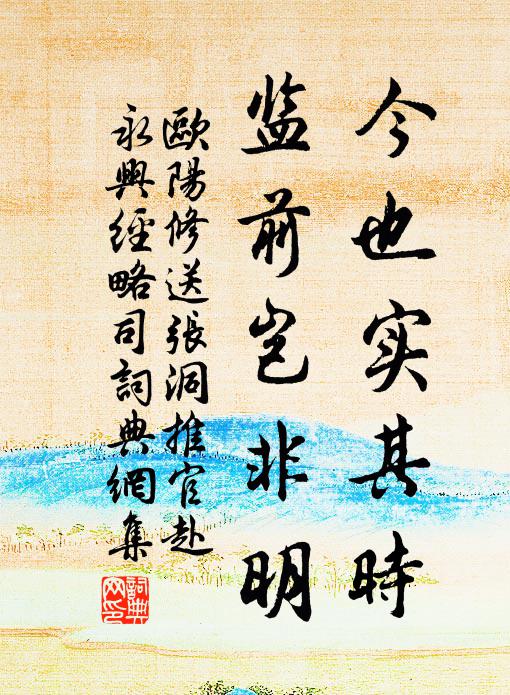 今也实其時
监前岂非明
歐陽修送張洞推官赴
永興經略司詞典網集
詞典
网印